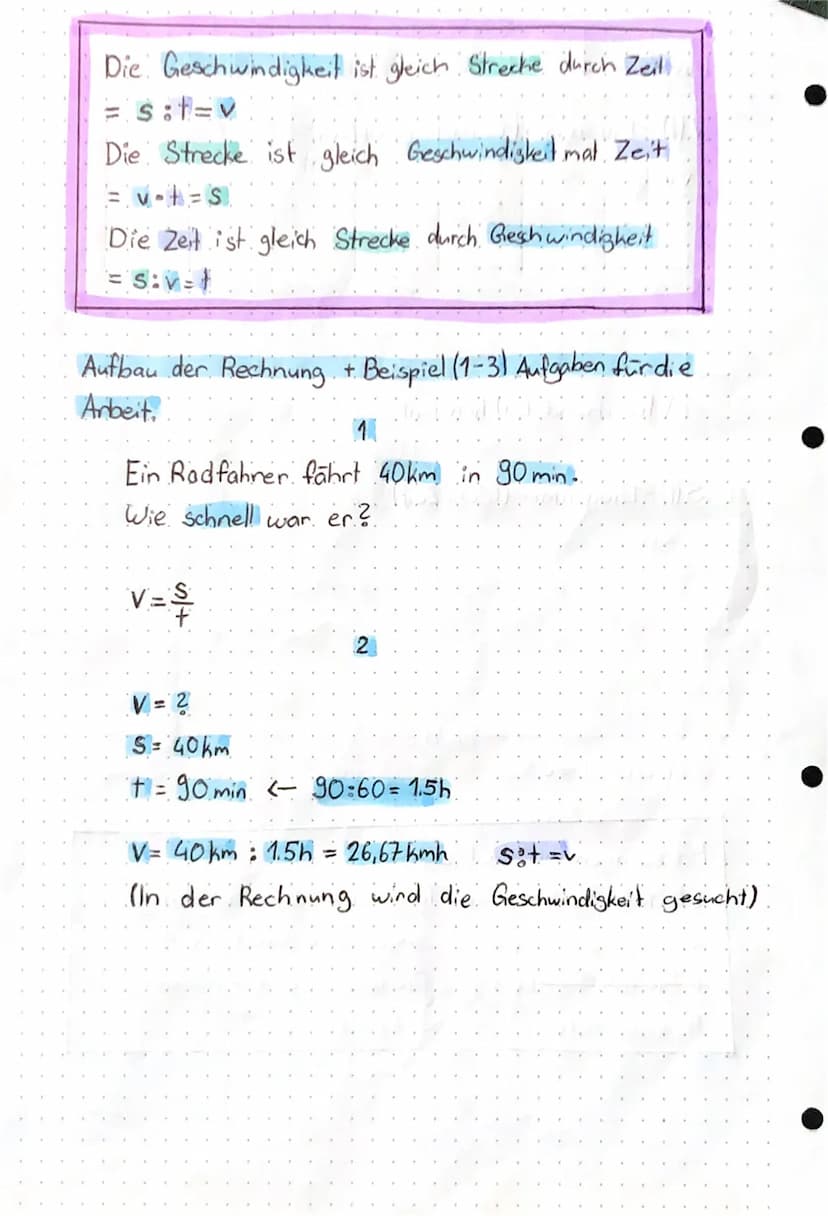 Die Geschwindigkeit ist gleich Strecke durch Zeit
= s:t=v
Die Strecke ist gleich Geschwindigkeit mal Zeit
= v·t=s
Die Zeit ist gleich Strecke durch Geschwindigkeit
= s:v=t
Aufbau der Rechnung + Beispiel (1-3) Aufgaben für die
Arbeit.
1
Ein Radfahrer fährt 40km in 90min.
Wie schnell war er?
V=s/t
2
V= ?
S= 40km
t= 90min ← 90:60= 1.5h
V= 40km : 1.5h = 26,67kmh s:t=v
(In der Rechnung wird die Geschwindigkeit gesucht)